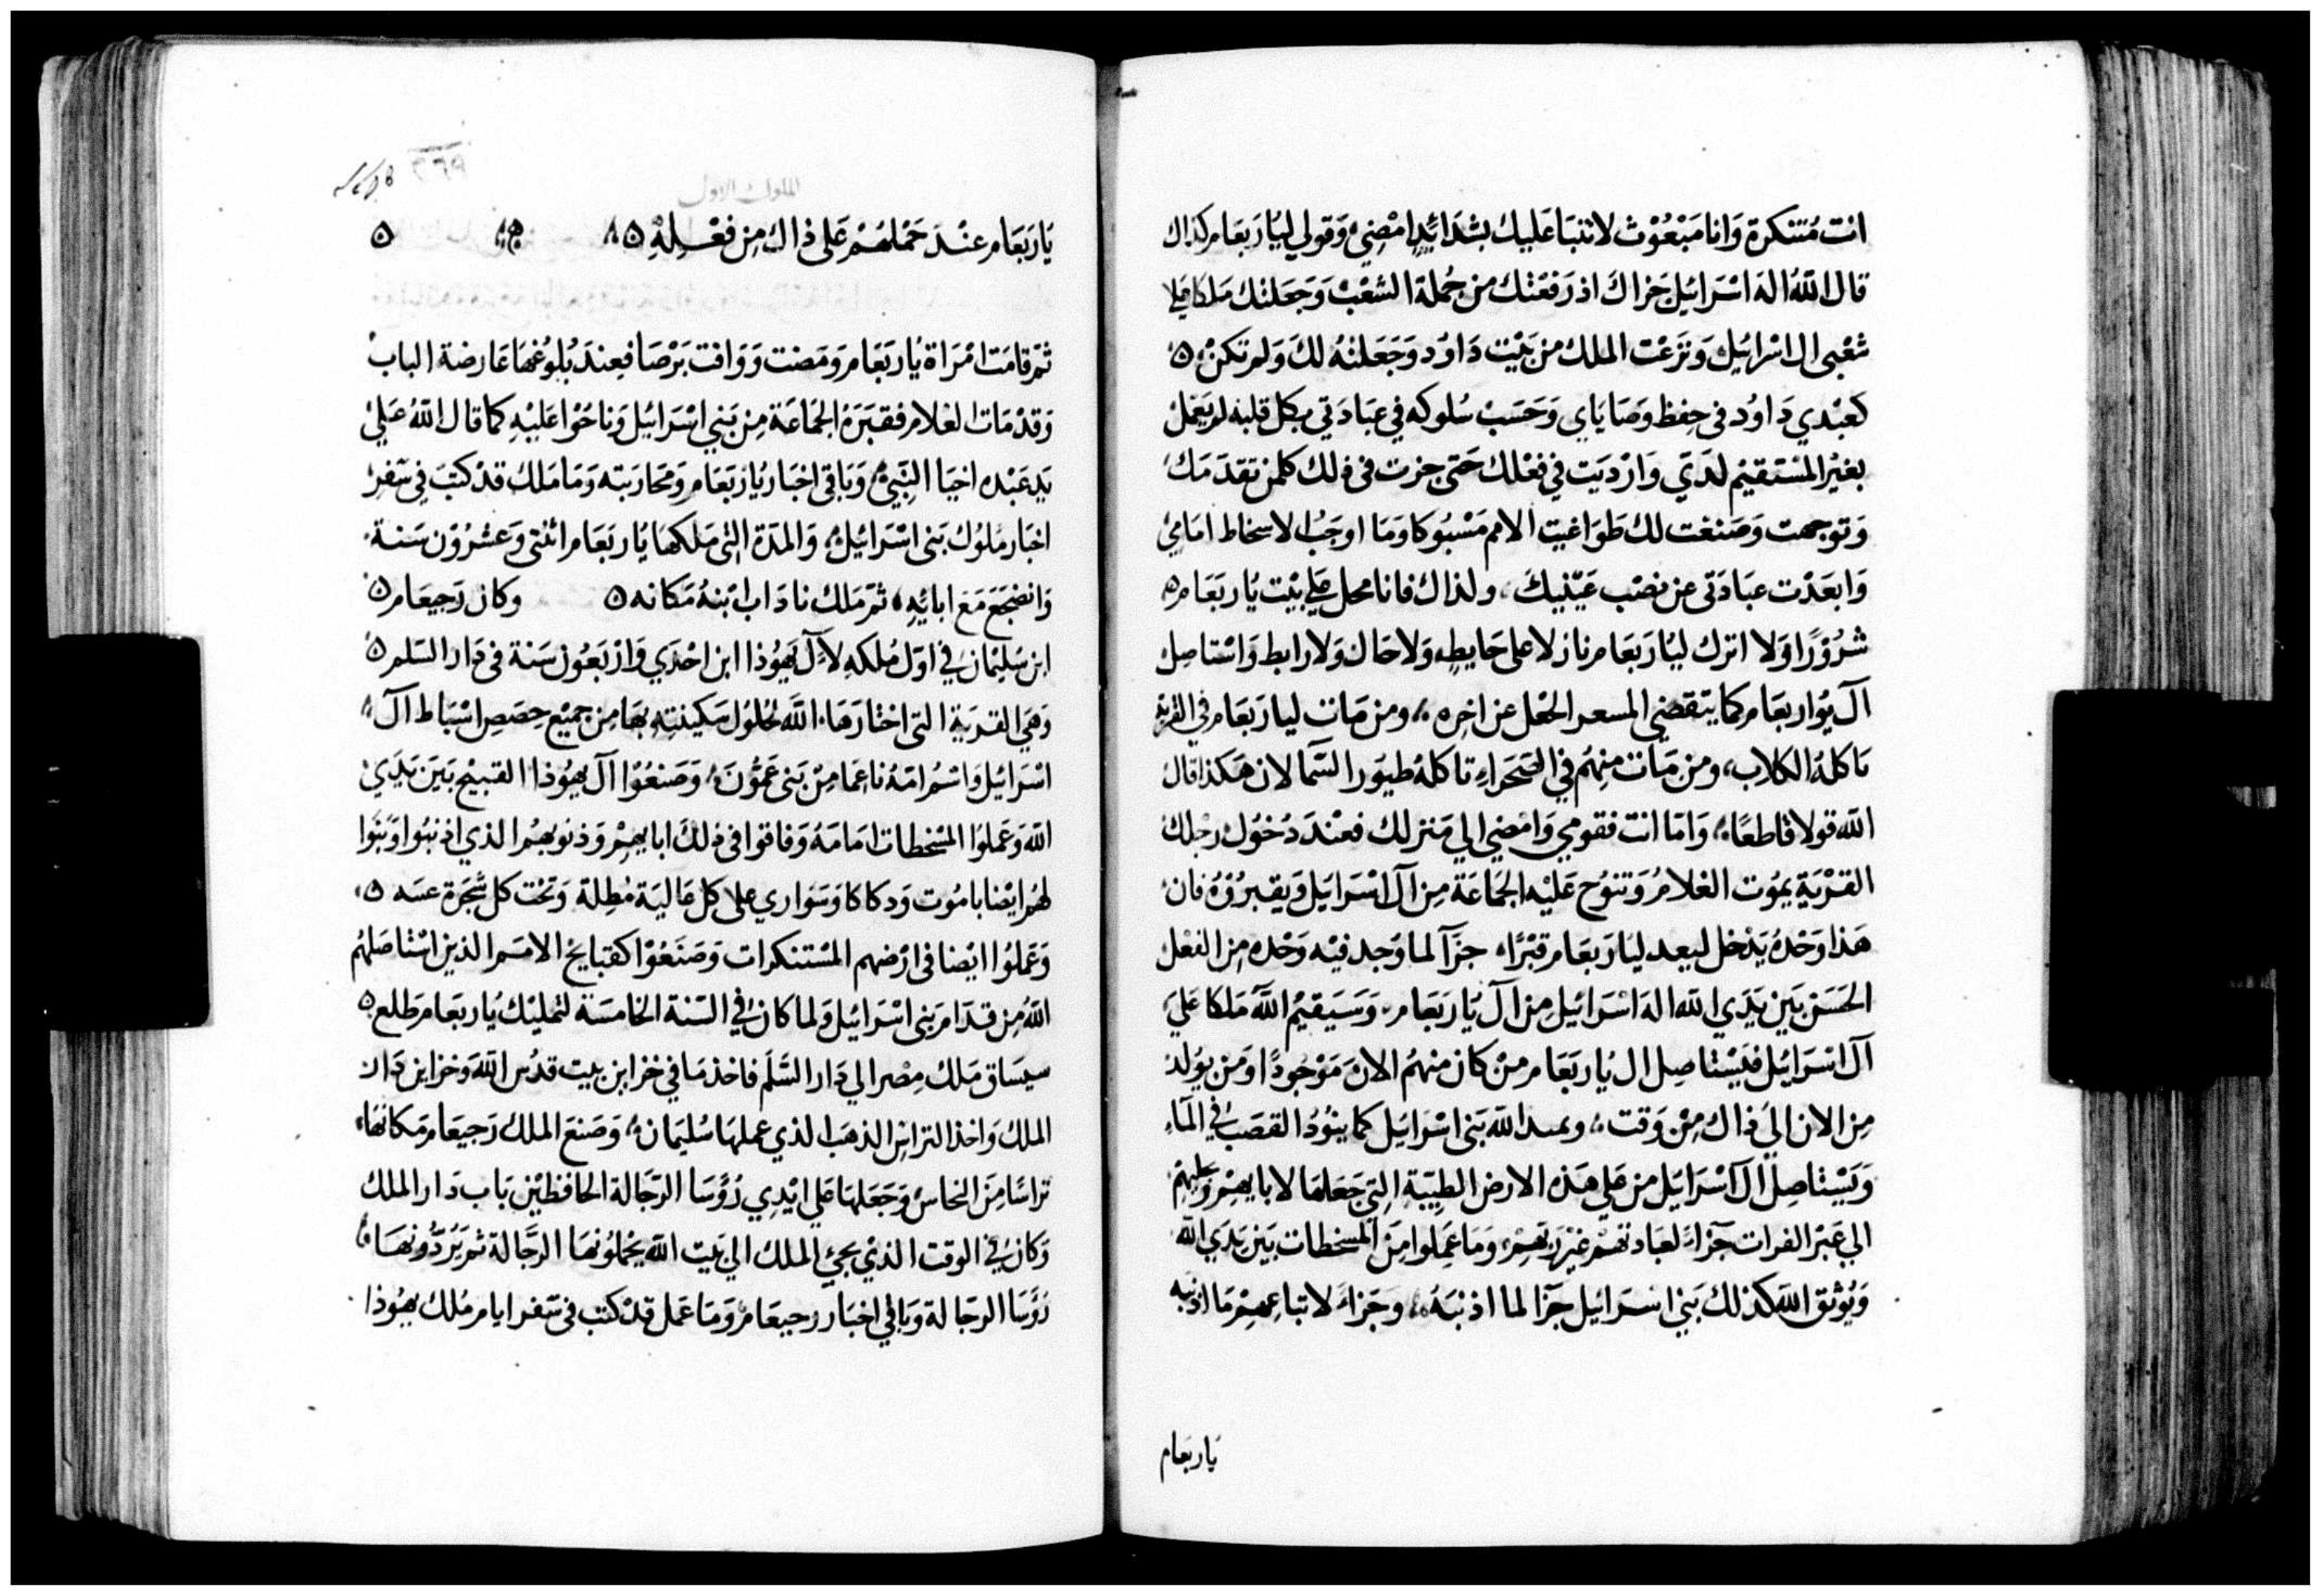 انت مُتنكرة وَانا مَبْعُوْث لاتنبَا عَليك بشدَائِدٍ امْضِي وَقولي ليُارَبعَام كذاك
قال اللّهُ اله اسْرَائيل جَزاكَ اذ رَفعَتك من جُملة الشعْبْ وَجَعَلتك مَلكا علي
شعْبى ال اسْرائيل وَنَزعْت الملك من بَيْت دَاوُد وَجَعَلتهُ لك وَلم تكنْ
كعَبْدي دَاوُد فى حِفظ وصَايَاي وَحَسَبْ سُلوكه في عبَادَتي بكل قلبه لم يَعْمل
بغيْر المسْتقيْم لدَيّ وَارْديَت في فعْلك حَتى جزت فى ذلك كلمن تقدمَك
وَتوجهت وَصَنعْت لك طوَاغيت الامم مَسْبُوكا وَمَا اوجَبُ الاسخاط امَامِي
وَابعَدْت عبَادَتى عن نصْب عَيْنيكَ، ولذاك فانا محل علي بيْت يُاربَعَام
شرُوْرًا وَلا اترك ليُارَبعَام نازلا على حَايطٍ، وَلا حَال وَلا رابط وَاسْتاصِل
آل يُواربعَام كما يتقضي المسعر الحْعل عن اخره، ومن مَات ليارَبَعَام في القريَة
تاكلهُ الكلاب، ومن مَات منهُم في الصَّحَراءِ تاكلهُ طيوُر السّمَا لان هَكذا قال
اللّه قولا قاطعًا، وَامّا انت فقومي وَامْضي الي مَنزلك فعْندَ دُخوُل رجْلك
القرْيَةِ يموُت الغلامُ وَتنوُح عَليْه الجَمَاعَة مِن آل اسْرَايَل وَيقبرُوْهُ فان
هَذا وَحْدهُ يَدْخل لبعد ليَارَبَعَام قبْرًا، جزَآ لما وُجد فيْه وَحْده من الفعْل
الحَسَن بَيْن يَدَي اللّه اله اسْرَائيل مِن آل يُارَبعَام، وَسَيَقيْم اللّه مَلكا عَلىَ
آل اسْرَائيل فيَسْتاصِل ال يُاربَعَام منْ كان منهُم الان مَوْجُودًا وَمَن يوُلد
مِن الان اليَ ذاك مِنْ وَقت، اللّه بَنى اسْرَايَل كما ينوُدُ القصَبُ في الماءِ
وَيَسْتاصِل آل اسْرَائيل من عَلي هَذه الارض الطيّبَة التِي جَعَلهَا لابايهِمْ
الي عَبْر الفرات جَزآءَ لعبَادتهمْ غيْر رَبّهمْ، وَمَا عَمِلوا مِنْ المسْخطات بَيْن يَدَي اللّه
وَيُوثق اللّه كذلك بَني اسْرَائيل جَزَآ لما اذنبَهُ، وجَزاءً لاتباعهمْ مَا اذنبه
يَاربعَام
الملوك الاول
يَارَبَعَام عنْدَ حَمْلهُمْ عَلى ذاك مِن فعْلِهِ
ثمْ قامَت امْرَاة يُارَبَعَام وَمَضت وَوَافت بَرْصَا فعِندَ بُلوُغهَا عَارضة البابْ
وَقدْ مَات الغلام فقبَرَهُ الجَمَاعَة مِنْ بَنى اسْرَائيل وَناحُوْا عَليْهِ كما قال اللّهُ عَليْ
يَد عَبْده اخيَا النَّبِيّ، وَبَاقى اخبَار يُاربَعَام وَمحاربَته وَمَا مَلك قدْ كتبَ في سَفرْ
اخبَار مُلوُك بَنى اسْرَائيل، وَالمدَة التى مَلكهَا يُارَبَعَام اثنتى وَعشرُوْن سَنة
وَانضجَعَ مَعَ ابائِهِ، ثمْ مَلك نادَاب ابْنهُ مَكانه وكان رَجيعَام
ابن سُليْمَان في اوّل مُلكهِ لآل يَهوُذا ابن احْدَي وَارْبَعُون سَنة فى دَار السّلم
وَهَي القريَة التى اختارَهَا اللّه لحُلوُل سَكينتِهِ بهَا مِن جميْع حِصَصِ اسْبَاط آل
اسْرَائيل وَاسْمُ امّهُ ناعمَا مِنْ بَنى عَموُّنَ، وَصَنعُوْا آل يهوُذا القبيْح بَيَن يَدَيْ
اللّه وَعَملوُا المسْخطات امَامَهُ وَفاقوا في ذلكَ ابايهِمْ وَذنوبهمُ الذي اذنبُوا وَبَنَوا
لهُم ايْضا بامُوت وَدكاكا وَسَواري على كل عَاليَة مُطِلة وَتحْت كل شجَرة
وَعَملوُا ايْضا فى ارْضهم المسْتنكرات وَصَنَعُوْا كقبَايح الامَم الذين اسْتاصَلهُم
اللّهُ مِن قدَام بَنى اسْرَائيل وَلما كان في السّنة الخامسَة لتمليْك يُاربعَام طلع
سيسَاق مَلك مِصْر الي دَار السَّلَم فاخذ مَا في خزاين بيت قدُس اللّه وَخزاين دَار
الملك وَاخذ التراس الذهَب الذي عملهَا سُليَمان، وَصنعَ الملك رَجيعَام مَكانهَا
تراسًا مِنَ النحاس وَجَعَلهَا عَلي ايْدِي رُؤسَا الرَّجَالة الحافظيْن بَاب دَار الملك
وَكان في الوقت الذيْ يجيُ الملك الي بَيت اللّه يَحْملوُنهَا الرَّجَّالة ثم يَرُدُّونهَا
رُؤسَا الرجَالة وَباقي اخبَار رجيعَام وَمَا عَمَل قدْ كتب فى سَفر ايام مُلك يهوُذا